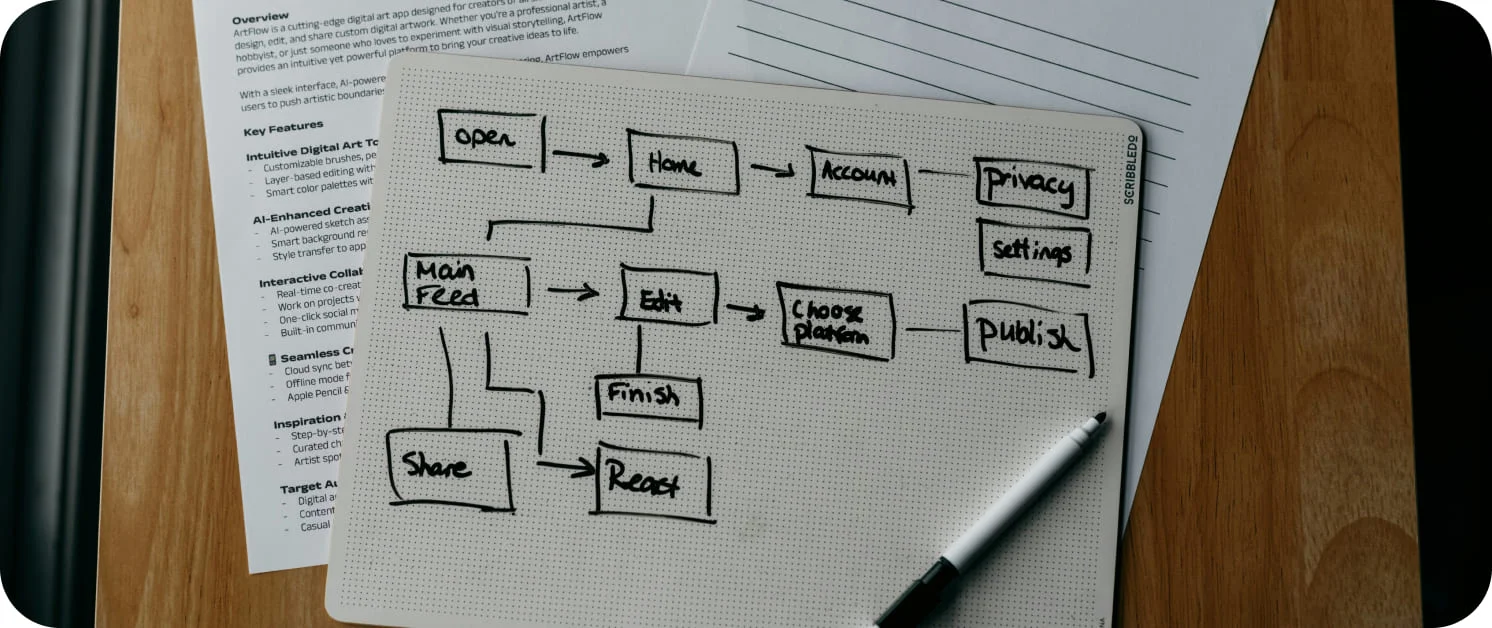 Overview
ArtFlow is a cutting-edge digital art app designed for creators of
design, edit, and share custom digital artwork. Whether you're a professional artist, a
hobbyist, or just someone who loves to experiment with visual storytelling, ArtFlow
provides an intuitive yet powerful platform to bring your creative ideas to life.
ArtFlow empowers
With a sleek interface,
users to push artistic
Key Features
Intuitive Digital Art
Customizable brushes,
Layer-based editing with
Smart color palettes
AI-Enhanced
AI-powered sketch
Smart background
Style transfer to
Interactive
Real-time
Work on projects
One-click social
Built-in
Seamless
Cloud sync
Offline mode
Apple Pencil &
Inspiration
Curated
Artist
Target
Digital
Content
Casual
open
Home
Account
privacy
settings
Main
Feed
Edit
Choose
platform
publish
Finish
Share
React
SCRIBBLEDO